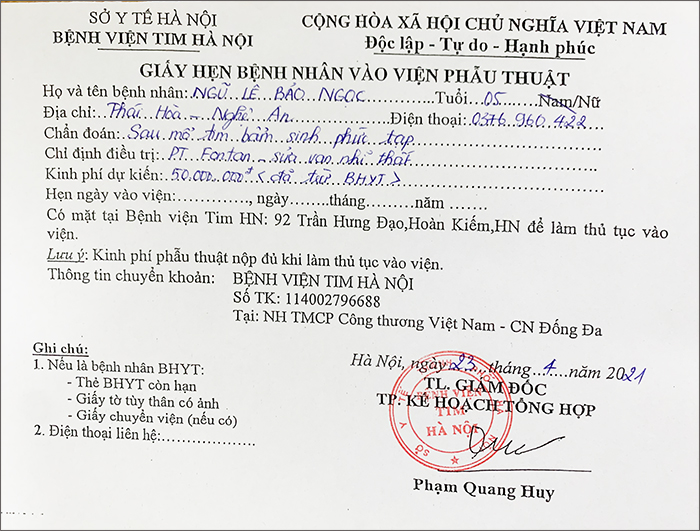 SỞ Y TẾ HÀ NỘI
BỆNH VIỆN TIM HÀ NỘI
CỘNG HÒA XÃ HỘI CHỦ NGHĨA VIỆT NAM
Độc lập - Tự do - Hạnh phúc
GIẤY HẸN BỆNH NHÂN VÀO VIỆN PHẪU THUẬT
Họ và tên bệnh nhân: NGŨ LÊ BẢO NGỌC Tuổi 05 Nam/Nữ
Địa chỉ: Thái Hoà - Nghệ An Điện thoại: 0376 960 422
Chẩn đoán: Sau mổ tim bẩm sinh phức tạp
Chỉ định điều trị: PT Fontan - sửa van nhĩ thất
Kinh phí dự kiến: 50.000.000đ < đã trừ BHYT >
Hẹn ngày vào viện:.............., ngày........tháng.........năm .......
Có mặt tại Bệnh viện Tim HN: 92 Trần Hưng Đạo,Hoàn Kiếm,HN để làm thủ tục vào
viện.
Lưu ý: Kinh phí phẫu thuật nộp đủ khi làm thủ tục vào viện.
Thông tin chuyển khoản: BỆNH VIỆN TIM HÀ NỘI
Số TK: 114002796688
Tại: NH TMCP Công thương Việt Nam - CN Đống Đa
Ghi chú:
1. Nếu là bệnh nhân BHYT:
- Thẻ BHYT còn hạn
- Giấy tờ tùy thân có ảnh
- Giấy chuyển viện (nếu có)
2. Điện thoại liên hệ:................
Hà Nội, ngày 23 tháng 4 năm 2021
TL. GIÁM ĐỐC
TP. KẾ HOẠCH TỔNG HỢP
BỆNH VIỆN
TIM
HÀ NỘI
Phạm Quang Huy